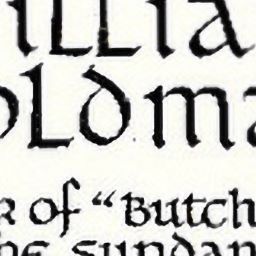 illia
oldma
r of “Butch
he Sundan